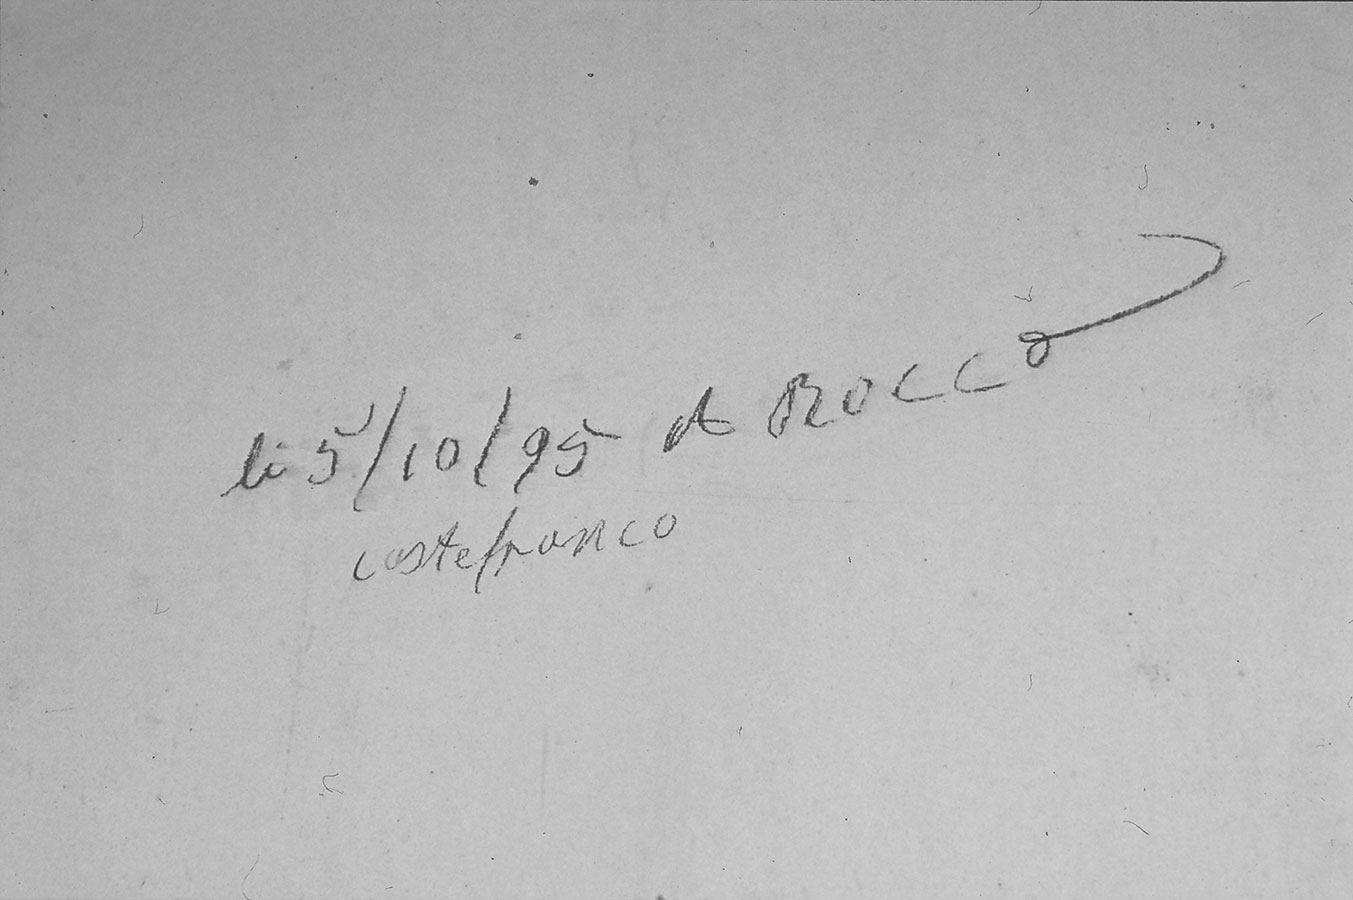 li 5/10/95 A ROCCO
castefranco